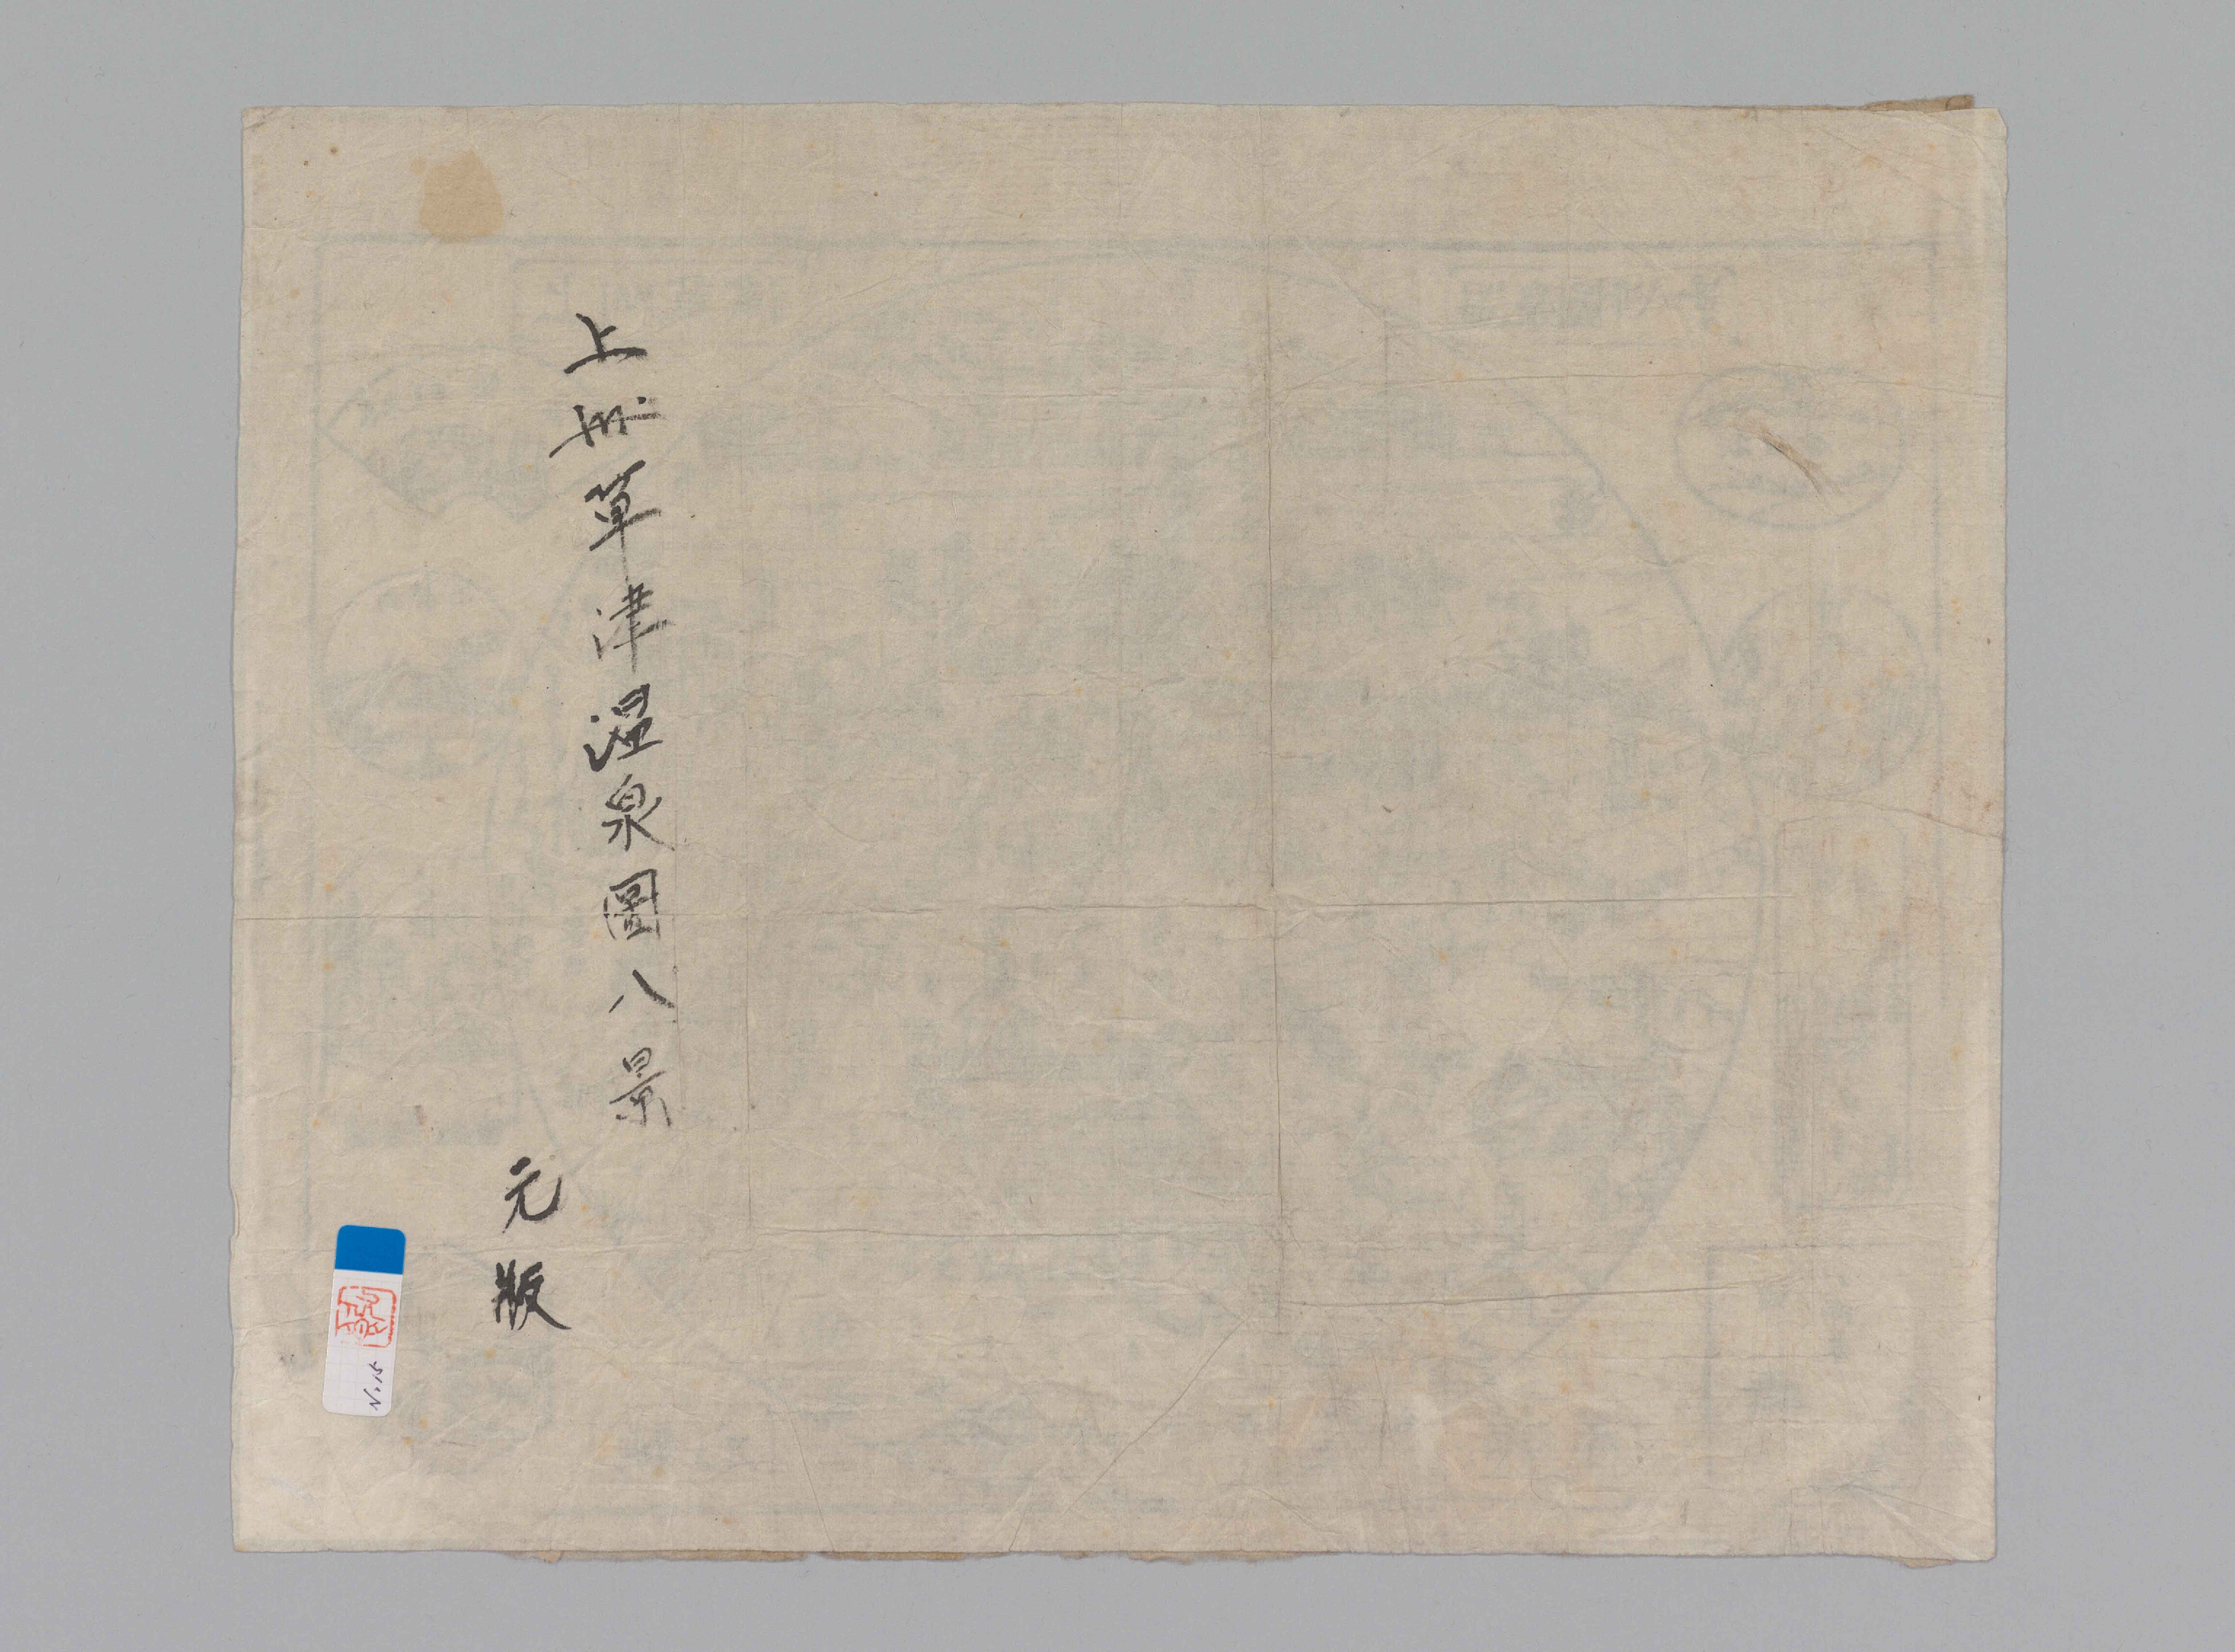 上州草津温泉圖八景
元版
No.15